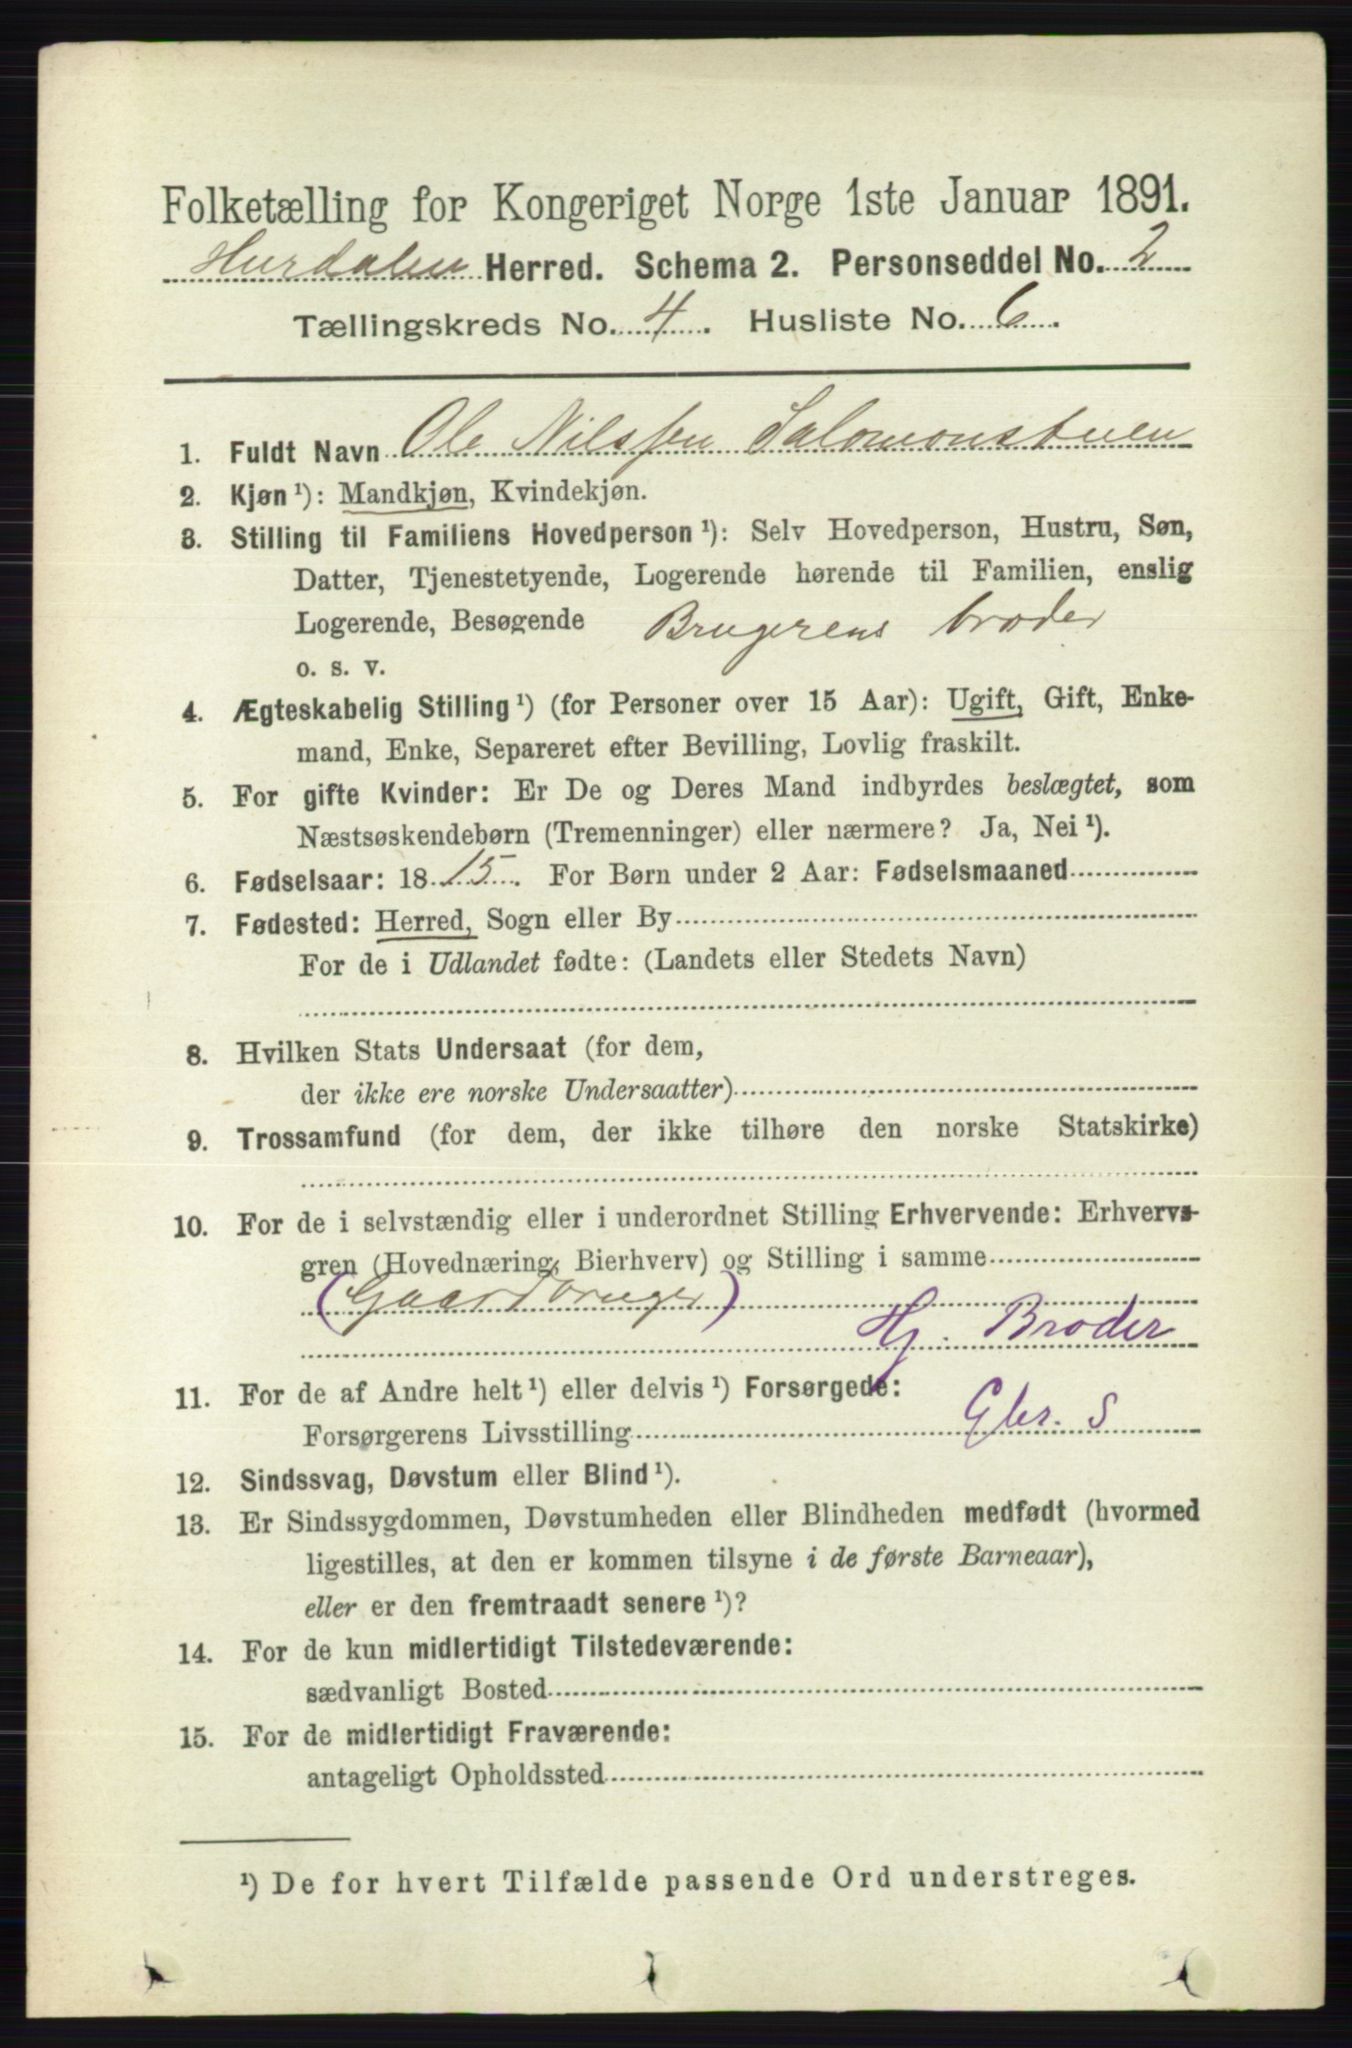 Folketælling for Kongeriget Norge 1ste Januar 1891.
Hurdalen Herred. Schema 2. Personseddel No. 2
Tællingskreds No. 4. Husliste No. 6.
1. Fuldt Navn Ole Nilssen Salomonstuen
2. Kjøn ¹): Mandkjøn, Kvindekjøn.
3. Stilling til Familiens Hovedperson ¹): Selv Hovedperson, Hustru, Søn,
Datter, Tjenestetyende, Logerende hørende til Familien, enslig
Logerende, Besøgende Brugerens broder
o. s. v.
4. Ægteskabelig Stilling ¹) (for Personer over 15 Aar): Ugift, Gift, Enke-
mand, Enke, Separeret efter Bevilling, Lovlig fraskilt.
5. For gifte Kvinder: Er De og Deres Mand indbyrdes beslægtet, som
Næstsøskendebørn (Tremenninger) eller nærmere? Ja, Nei ¹).
6. Fødselsaar: 18 15. For Børn under 2 Aar: Fødselsmaaned
7. Fødested: Herred, Sogn eller By
For de i Udlandet fødte: (Landets eller Stedets Navn)
8. Hvilken Stats Undersaat (for dem,
der ikke ere norske Undersaatter)
9. Trossamfund (for dem, der ikke tilhøre den norske Statskirke)
10. For de i selvstændig eller i underordnet Stilling Erhvervende: Erhvervs-
gren (Hovednæring, Bierhverv) og Stilling i samme
(Gaardbruger)
Hj. Broder
11. For de af Andre helt ¹) eller delvis ¹) Forsørgede:
Forsørgerens Livsstilling Gbr. S
12. Sindssvag, Døvstum eller Blind ¹).
13. Er Sindssygdommen, Døvstumheden eller Blindheden medfødt (hvormed
ligestilles, at den er kommen tilsyne i de første Barneaar),
eller er den fremtraadt senere ¹)?
14. For de kun midlertidigt Tilstedeværende:
sædvanligt Bosted
15. For de midlertidigt Fraværende:
antageligt Opholdssted
¹) De for hvert Tilfælde passende Ord understreges.